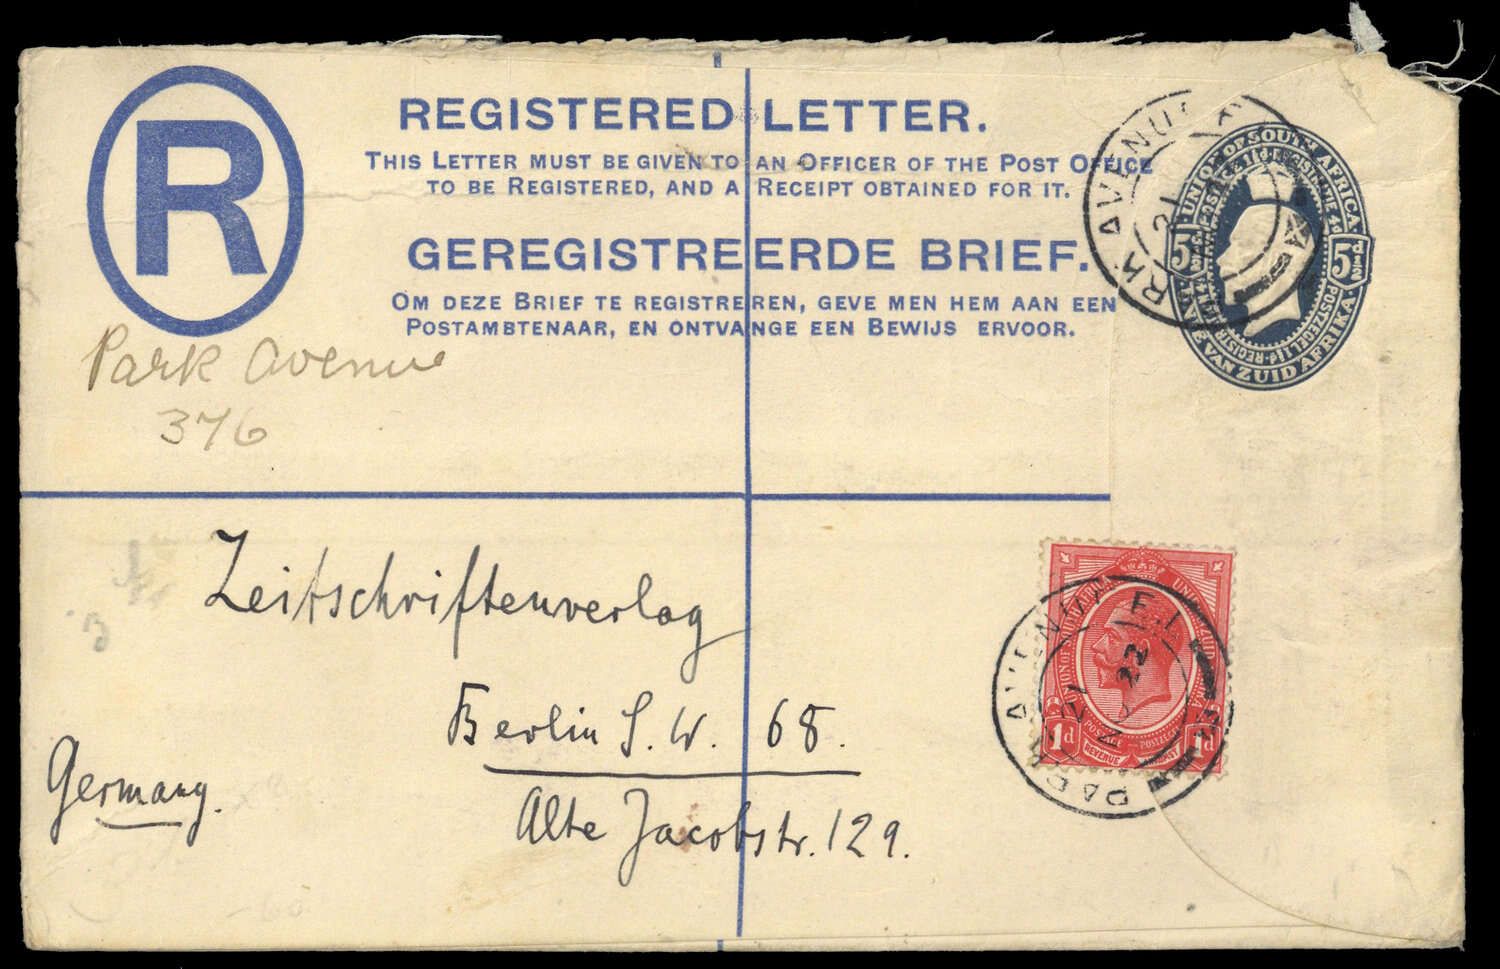 R
REGISTERED LETTER.
THIS LETTER MUST BE GIVEN TO AN OFFICER OF THE POST OFFICE
TO BE REGISTERED, AND A RECEIPT OBTAINED FOR IT.
GEREGISTREERDE BRIEF.
OM DEZE BRIEF TE REGISTREREN, GEVE MEN HEM AAN EEN
POSTAMBTENAAR, EN ONTVANGE EEN BEWIJS ERVOOR.
UNION OF SOUTH AFRICA
5
5
VAN ZUID AFRIKA
PARK AVENUE
21
Park Avenue
376
Zeitschriftenverlag
Berlin S. W. 68.
Alte Jacobstr. 129.
Germany.
UNION OF SOUTH AFRICA
POSTAGE POSTZEGEL
1d REVENUE 1d
PARK AVENUE
21
22